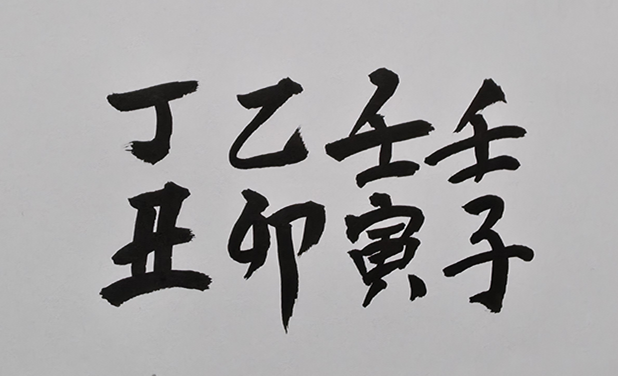 壬子
壬寅
乙卯
丁丑